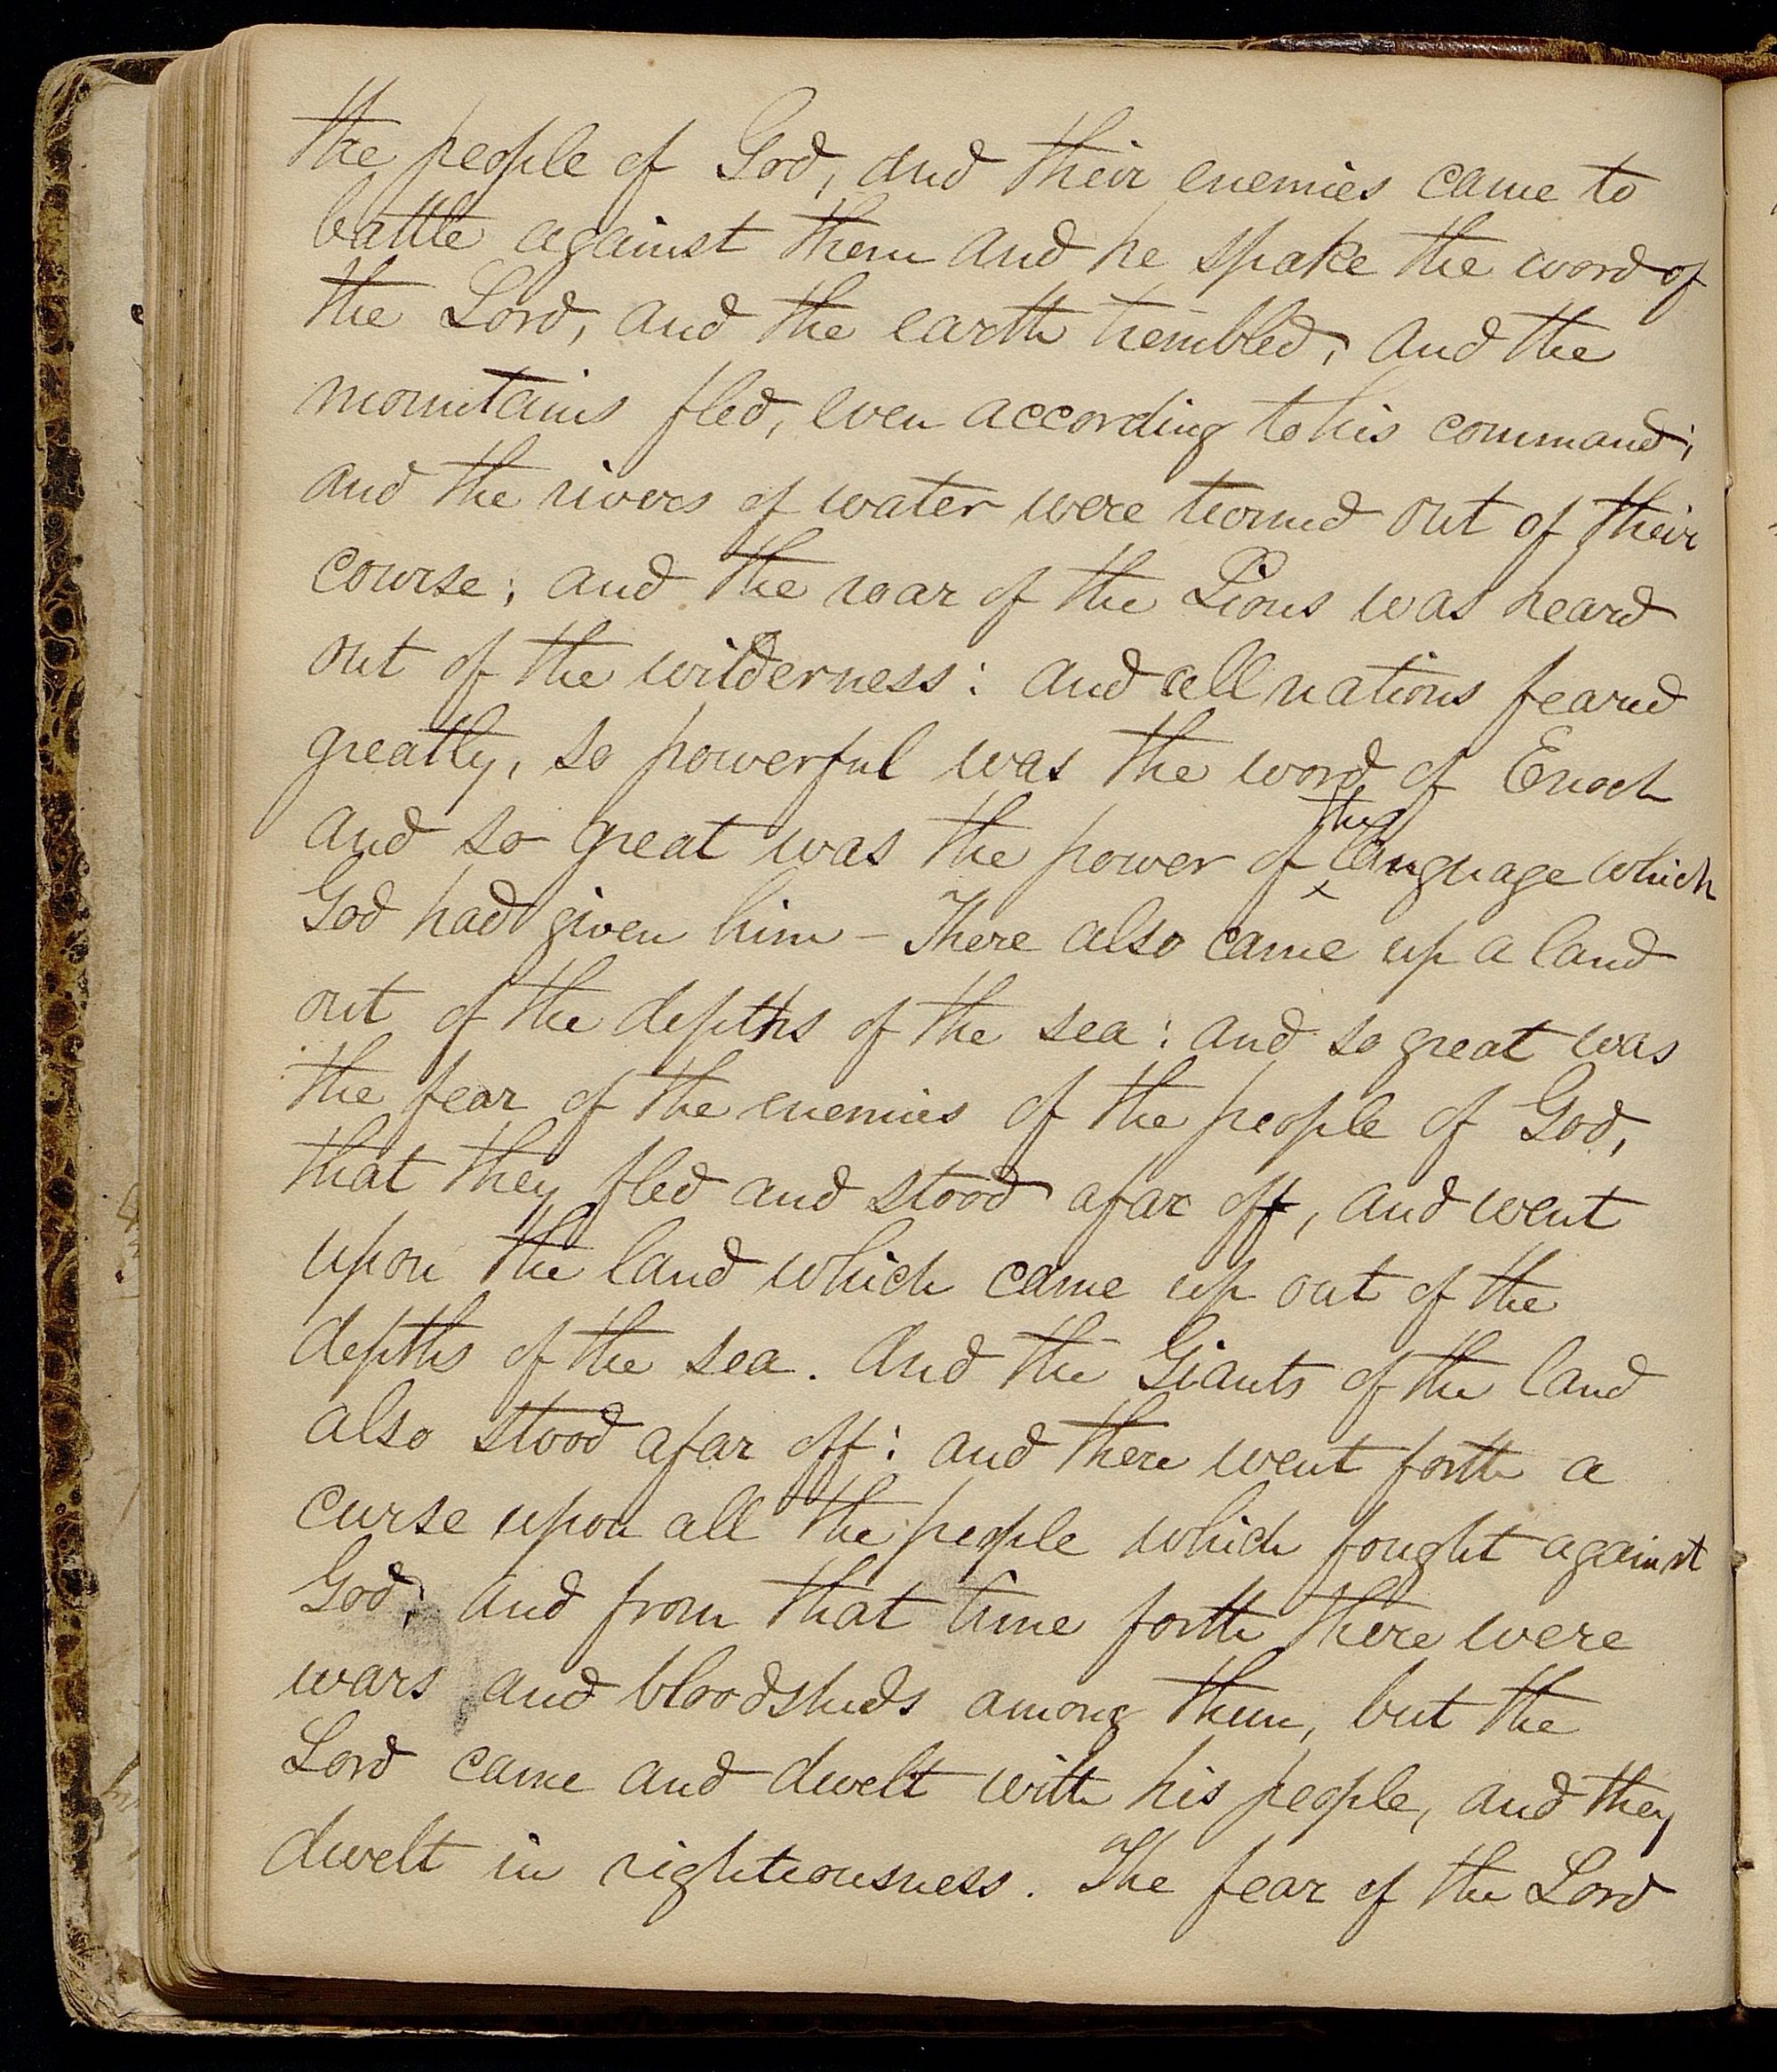 the people of God, and their enemies came to
battle against them and he spake the word of
the Lord, and the earth trembled, and the
mountains fled, even according to his command;
and the rivers of water were turned out of their
course; and the roar of the Lions was heard
out of the wilderness: and all nations feared
greatly, so powerful was the word of Enoch
the
and so great was the power of language which
God had given him – There also came up a land
out of the depths of the sea: and so great was
the fear of the enemies of the people of God,
that they fled and stood afar off, and went
upon the land which came up out of the
depths of the sea. And the Giants of the land
also stood afar off: and there went forth a
curse upon all the people which fought against
God; and from that time forth there were
wars and bloodsheds among them, but the
Lord came and dwelt with his people, and they
dwelt in righteousness. The fear of the Lord